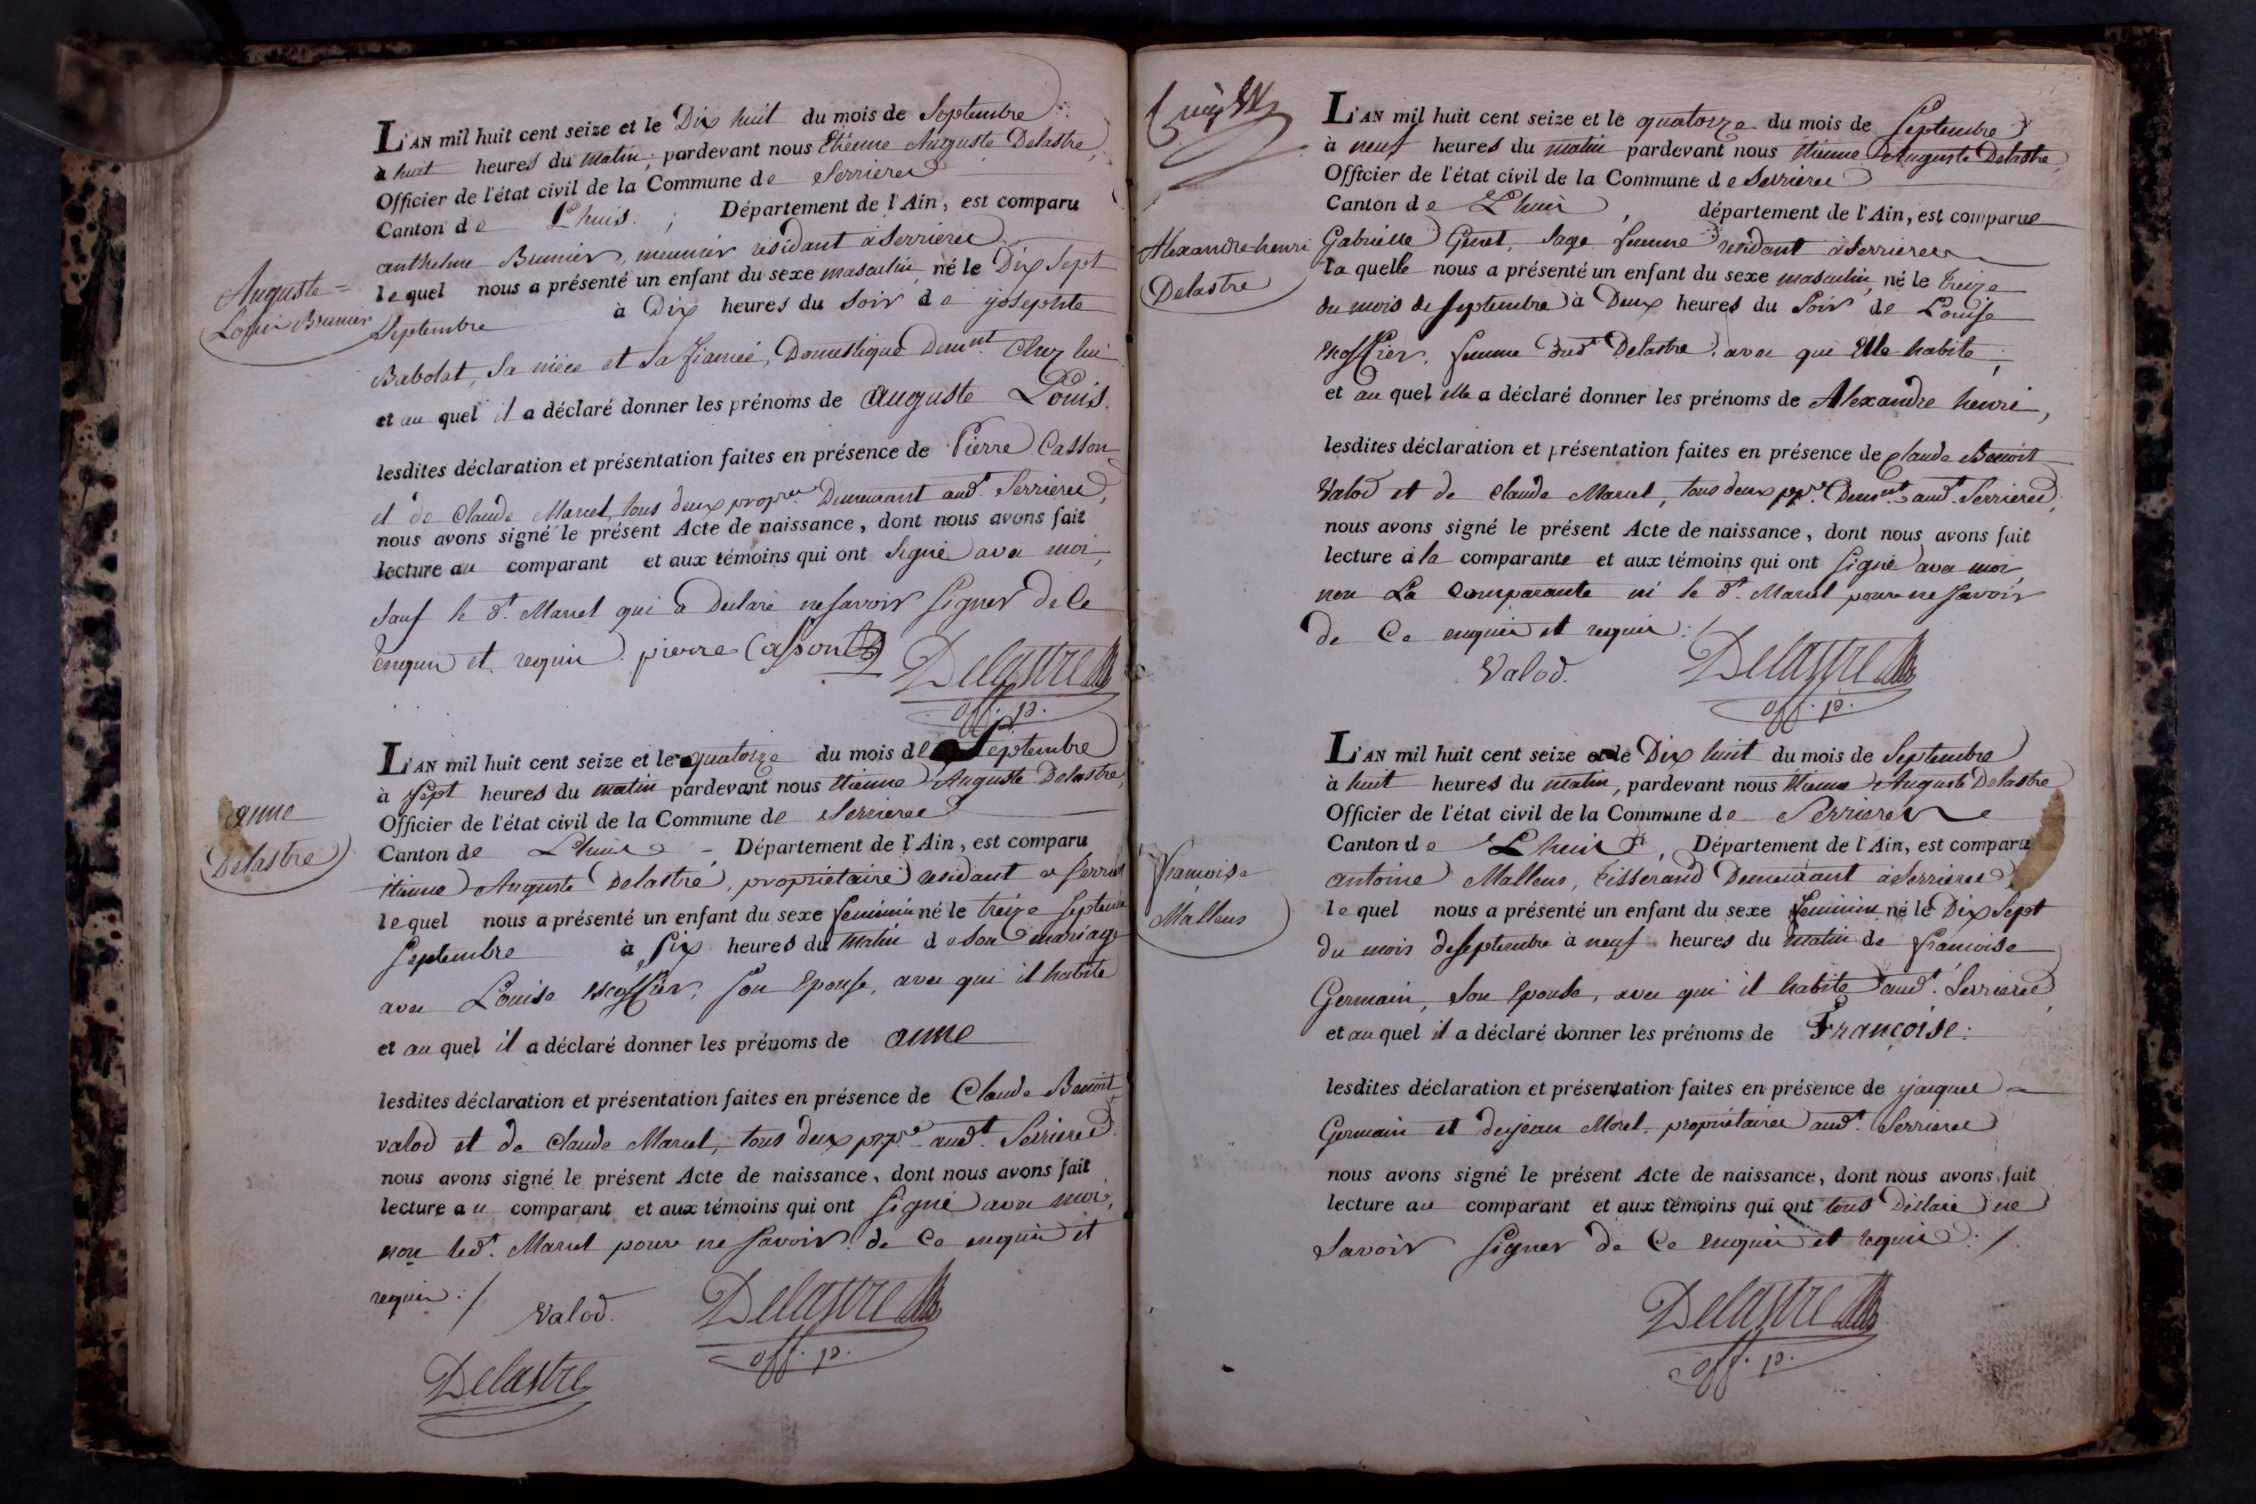 L'AN mil huit cent seize et le Dix huit du mois de Septembre
à huit heures du matin, pardevant nous Etienne Auguste Delastre,
Officier de l'état civil de la Commune de Serrieres
Canton de Lhuis, Département de l'Ain, est comparu
anthelme Brunier, meunier résidant à Serrieres
lequel nous a présenté un enfant du sexe masculin, né le Dix Sept
Septembre à Dix heures du Soir de josephte
Babolat, sa nièce et sa fiancée, Domestique demnt. chez lui
et au quel il a déclaré donner les prénoms de auguste Louis.
lesdites déclaration et présentation faites en présence de Pierre Casson
et de Claude Marcel, tous deux propres. Demeurant audt. Serrieres,
nous avons signé le présent Acte de naissance, dont nous avons fait
lecture au comparant et aux témoins qui ont signé avec moi,
Sauf le dt. Marcel qui a Déclaré ne savoir signer de ce
enquis et requis. pierre Casson Delastre
off. p.
Auguste=
Louis Brunier
L'AN mil huit cent seize et le quatorze du mois de Septembre
à Sept heures du matin pardevant nous Etienne Auguste Delastre,
Officier de l'état civil de la Commune de Serrieres
Canton de Lhuis, Département de l'Ain, est comparu
Etienne Auguste Delastre, propriétaire résidant a Serrieres
lequel nous a présenté un enfant du sexe féminin né le treize Septembre
Septembre à Six heures du matin de son mariage
avec Louise escoffier, son Epouse, avec qui il habite
et au quel il a déclaré donner les prénoms de anne
lesdites déclaration et présentation faites en présence de Claude Benoit
valod et de Claude Marcel, tous deux ppres. audt. Serrieres
nous avons signé le présent Acte de naissance, dont nous avons fait
lecture au comparant et aux témoins qui ont signé avec moi,
non ledt. Marcel pour ne savoir de ce enquis et
requis :/ Valod. Delastre
off. p.
Delastre
anne
Delastre
L'AN mil huit cent seize et le quatorze du mois de Septembre
à neuf heures du matin pardevant nous Etienne Auguste Delastre,
Officier de l'état civil de la Commune de Serrieres
Canton de Lhuis, département de l'Ain, est comparue
Gabrielle Genet, Sage femme résidant à Serrieres
la quelle nous a présenté un enfant du sexe masculin, né le treize
du mois de Septembre à Deux heures du Soir de Louise
escoffier, femme dudt. Delastre, avec qui Elle habite,
et au quel elle a déclaré donner les prénoms de Alexandre henri,
lesdites déclaration et présentation faites en présence de Claude Benoit
Valod et de Claude Marcel, tous deux ppres. Demnt. audt. Serrieres,
nous avons signé le présent Acte de naissance, dont nous avons fait
lecture à la comparante et aux témoins qui ont signé avec moi,
non La Comparante ni le dt. Marcel pour ne savoir
de ce enquis et requis :/
Valod. Delastre
off. p.
Alexandre henri
Delastre
L'AN mil huit cent seize et le Dix huit du mois de Septembre
à huit heures du matin, pardevant nous Etienne Auguste Delastre
Officier de l'état civil de la Commune de Serrieres
Canton de Lhuis, Département de l'Ain, est comparu
antoine Malleus, tisserand Demeurant à Serrieres
lequel nous a présenté un enfant du sexe féminin né le Dix Sept
du mois de Septembre à neuf heures du matin de françoise
Germain, son Epouse, avec qui il habite audt. Serrieres,
et au quel il a déclaré donner les prénoms de Françoise.
lesdites déclaration et présentation faites en présence de jacques
Germain et de jean Morel, propriétaires audt. Serrieres
nous avons signé le présent Acte de naissance, dont nous avons fait
lecture au comparant et aux témoins qui ont tous Déclaré ne
Savoir signer de ce enquis et requis :/
Delastre
off. p.
françoise
Malleus